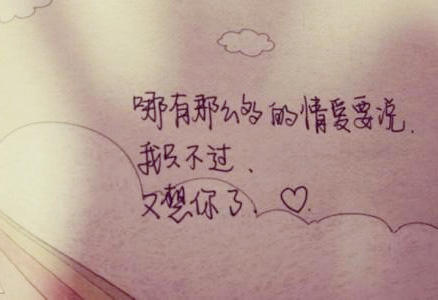 哪有那么多的情爱要说.
我只不过、
又想你了. ♡.